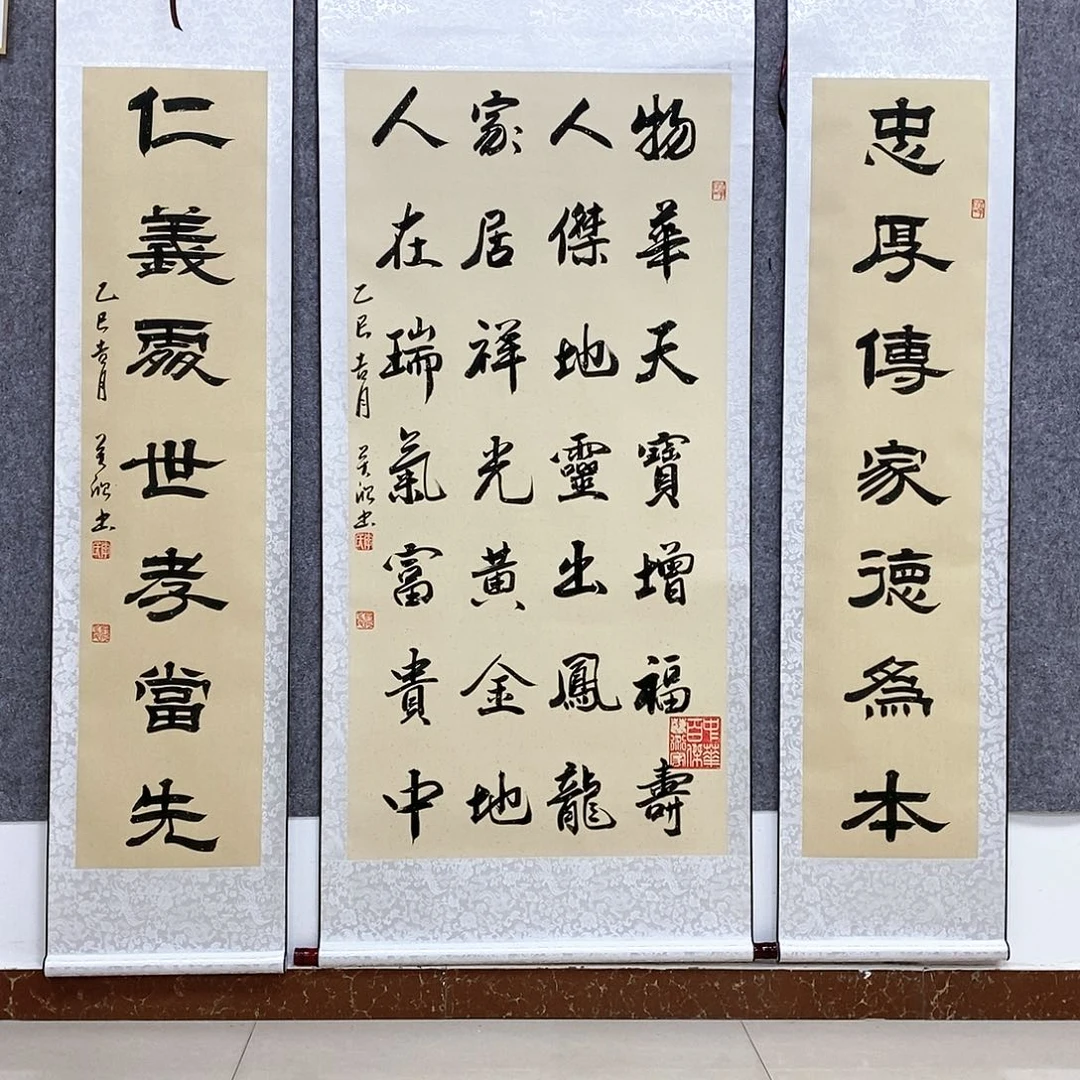 忠厚傳家德為本
物華天寶增福壽
人傑地靈出鳳龍
家居祥光黃金地
人在瑞氣富貴中
乙巳吉月
中華百傑
仁義處世孝當先
乙巳吉月